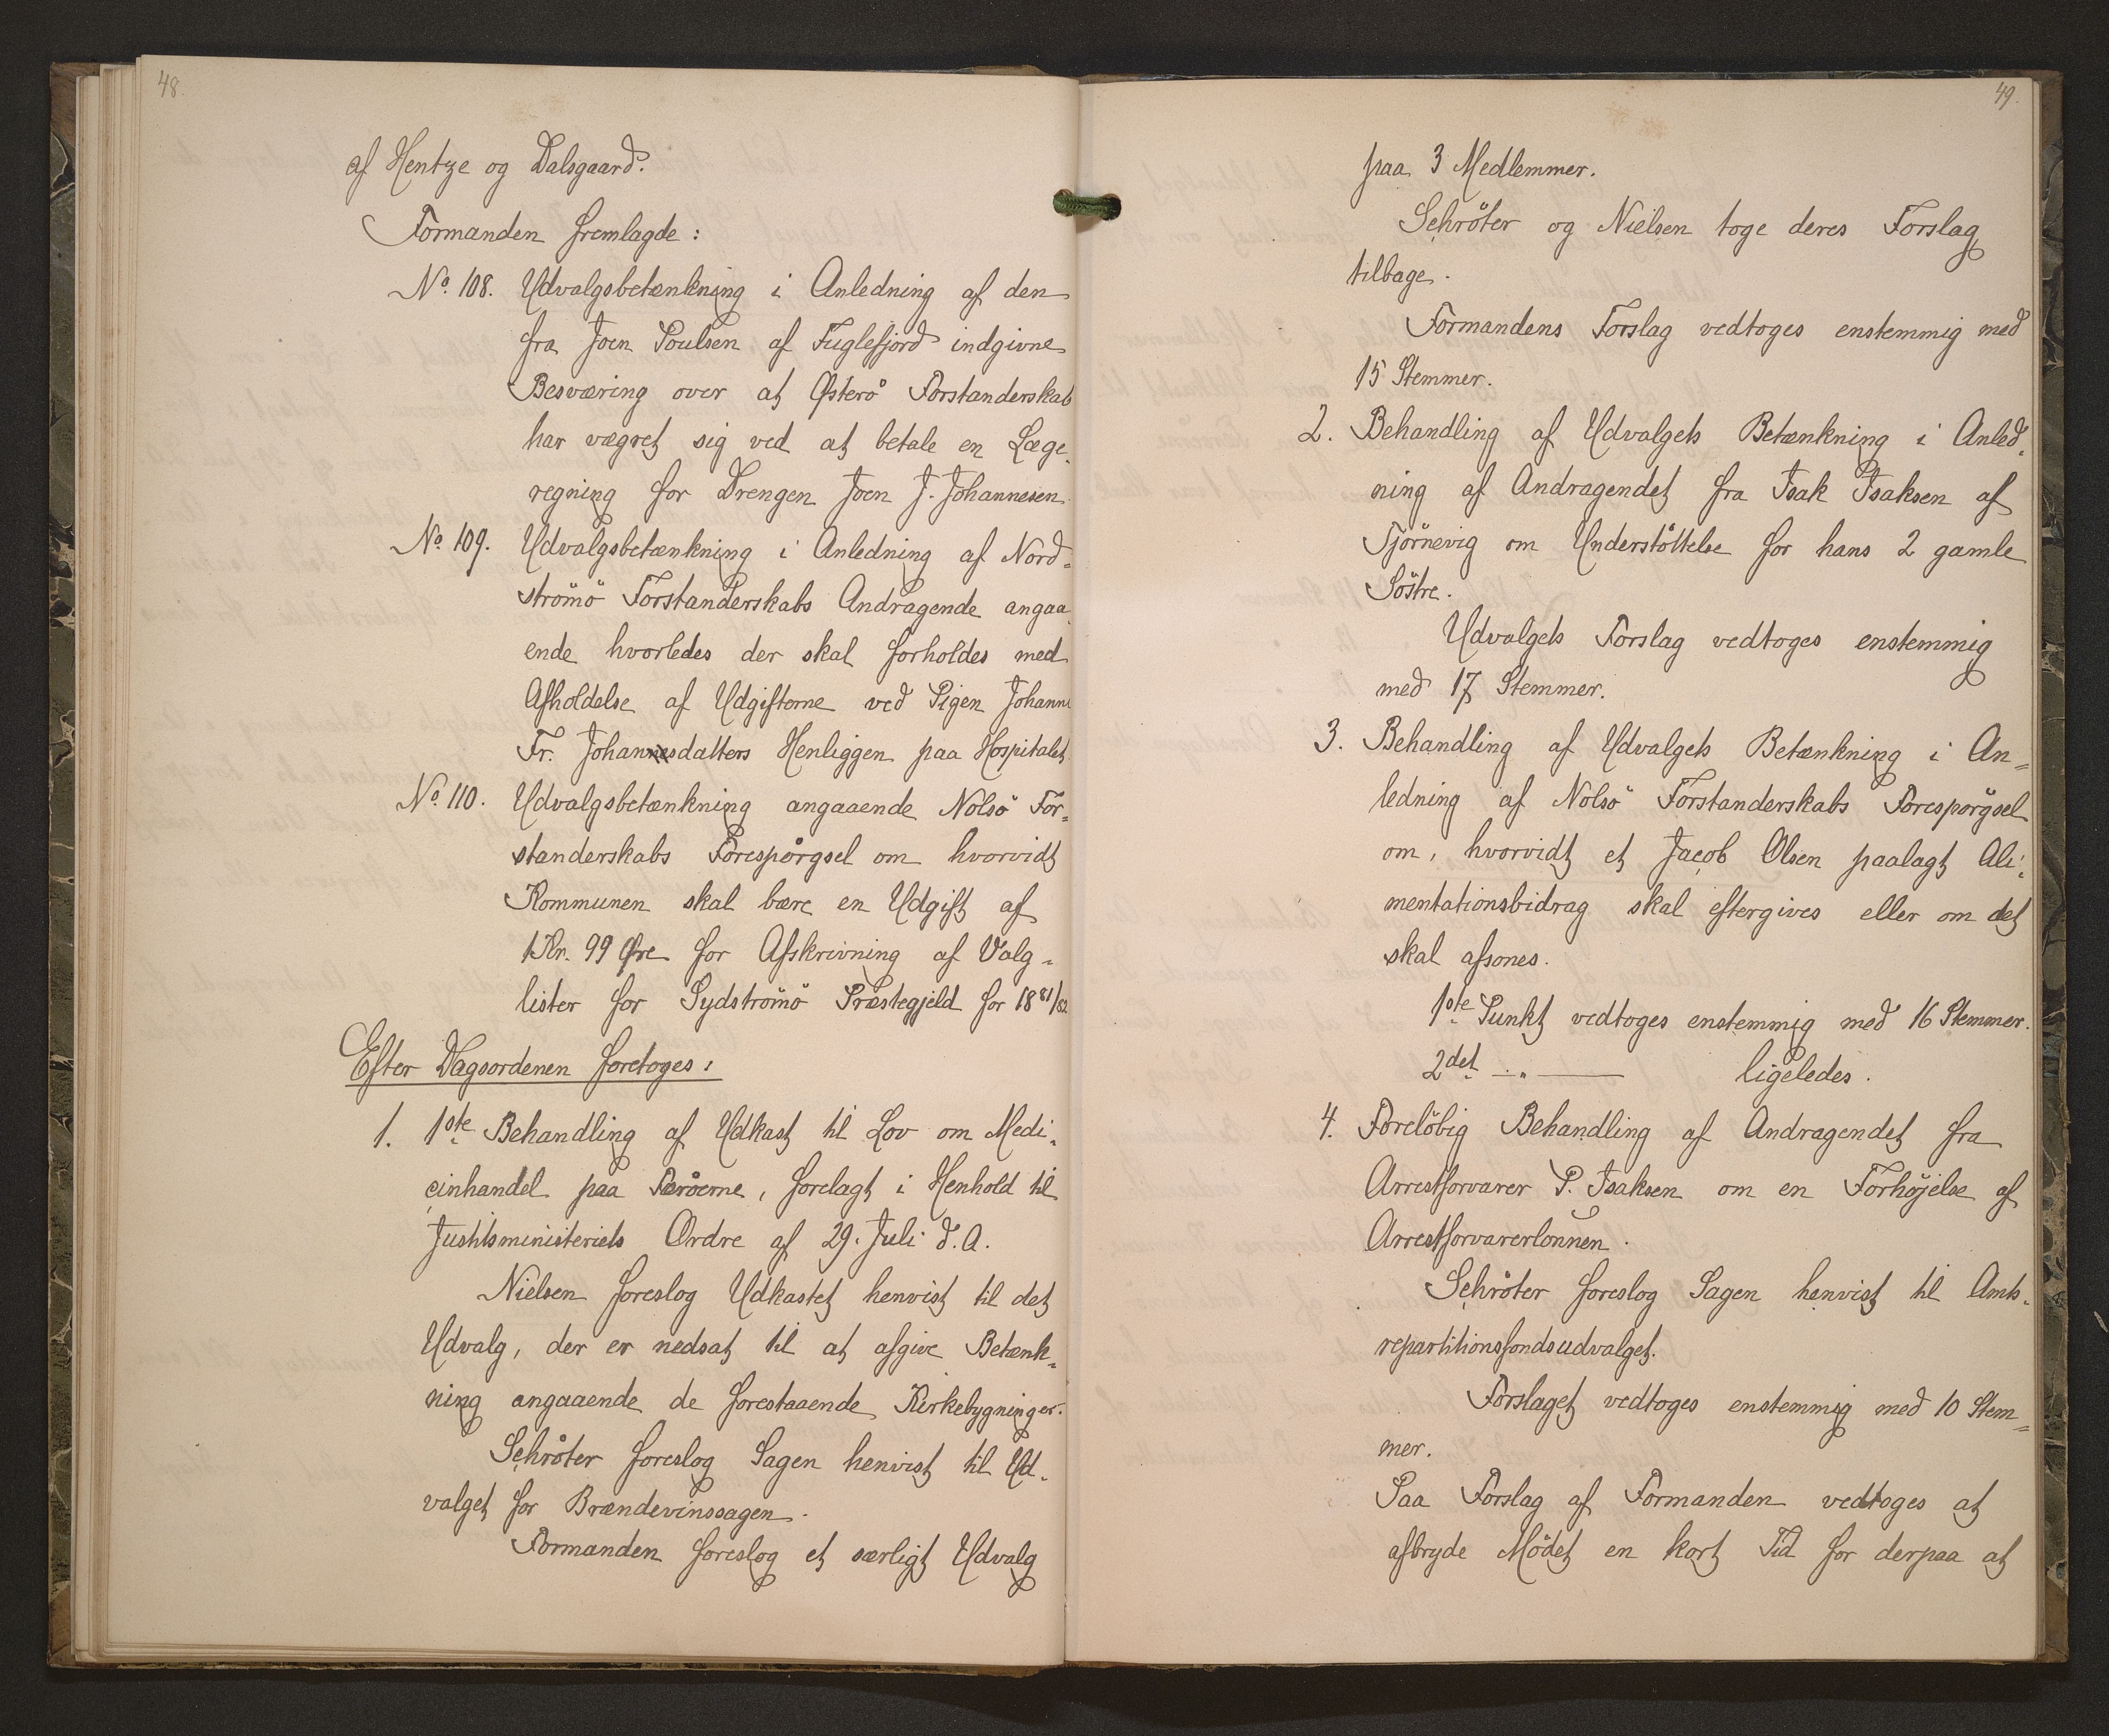 48.
af Hentze og Dalsgaard.
Formanden fremlagde:
No. 108. Udvalgsbetænkning i Anledning af den
fra Joen Poulsen af Fuglefjord indgivne
Besværing over at Østerö Forstanderskab
har vægret sig ved at betale en Læge-
regning for Drengen Joen J. Johannesen
No. 109. Udvalgsbetænkning i Anledning af Nord-
strömö Forstanderskabs Andragende angaa-
ende hvorledes der skal forholdes med
Afholdelse af Udgifterne ved Pigen Johanne
Fr. Johannesdatters Henliggen paa Hospitalet
No. 110. Udvalgsbetænkning angaaende Nolsö For-
standerskabs Forespörgsel om hvorvidt
Kommunen skal bære en Udgift af
1 Kr. 99 Øre for Afskrivning af Valg-
lister for Sydströmö Præstegjeld for 1881/82
Efter Dagsordenen foretoges:
1. 1ste Behandling af Udkast til Lov om Medi-
cinhandel paa Færöerne, forelagt i Henhold til
Justitsministeriets Ordre af 29. Juli d. A.
Nielsen foreslog Udkastet henvist til det
Udvalg, der er nedsat til at afgive Betænk-
ning angaaende de forestaaende Kirkebygninger.
Schröter foreslog Sagen henvist til Ud-
valget for Brændevinssagen.
Formanden foreslog et særligt Udvalg
49.
paa 3 Medlemmer.
Schröter og Nielsen toge deres Forslag
tilbage.
Formandens Forslag vedtoges enstemmig med
15 Stemmer.
2. Behandling af Udvalgets Betænkning i Anled-
ning af Andragendet fra Isak Isaksen af
Tjörnevig om Understöttelse for hans 2 gamle
Söstre.
Udvalgets Forslag vedtoges enstemmig
med 17 Stemmer.
3. Behandling af Udvalgets Betænkning i An-
ledning af Nolsö Forstanderskabs Forespörgsel
om, hvorvidt et Jacob Olsen paalagt Ali-
mentationsbidrag skal eftergives eller om det
skal afsones.
1ste Punkt vedtoges enstemmig med 16 Stemmer.
2det — " — ligeledes.
4. Forelöbig Behandling af Andragendet fra
Arrestforvarer P. Isaksen om en Forhöjelse af
Arrestforvarerlönnen.
Schröter foreslog Sagen henvist til Amts-
repartitionsfondsudvalget.
Forslaget vedtoges enstemmig med 10 Stem-
mer.
Paa Forslag af Formanden vedtoges at
afbryde Mödet en kort Tid for derpaa at